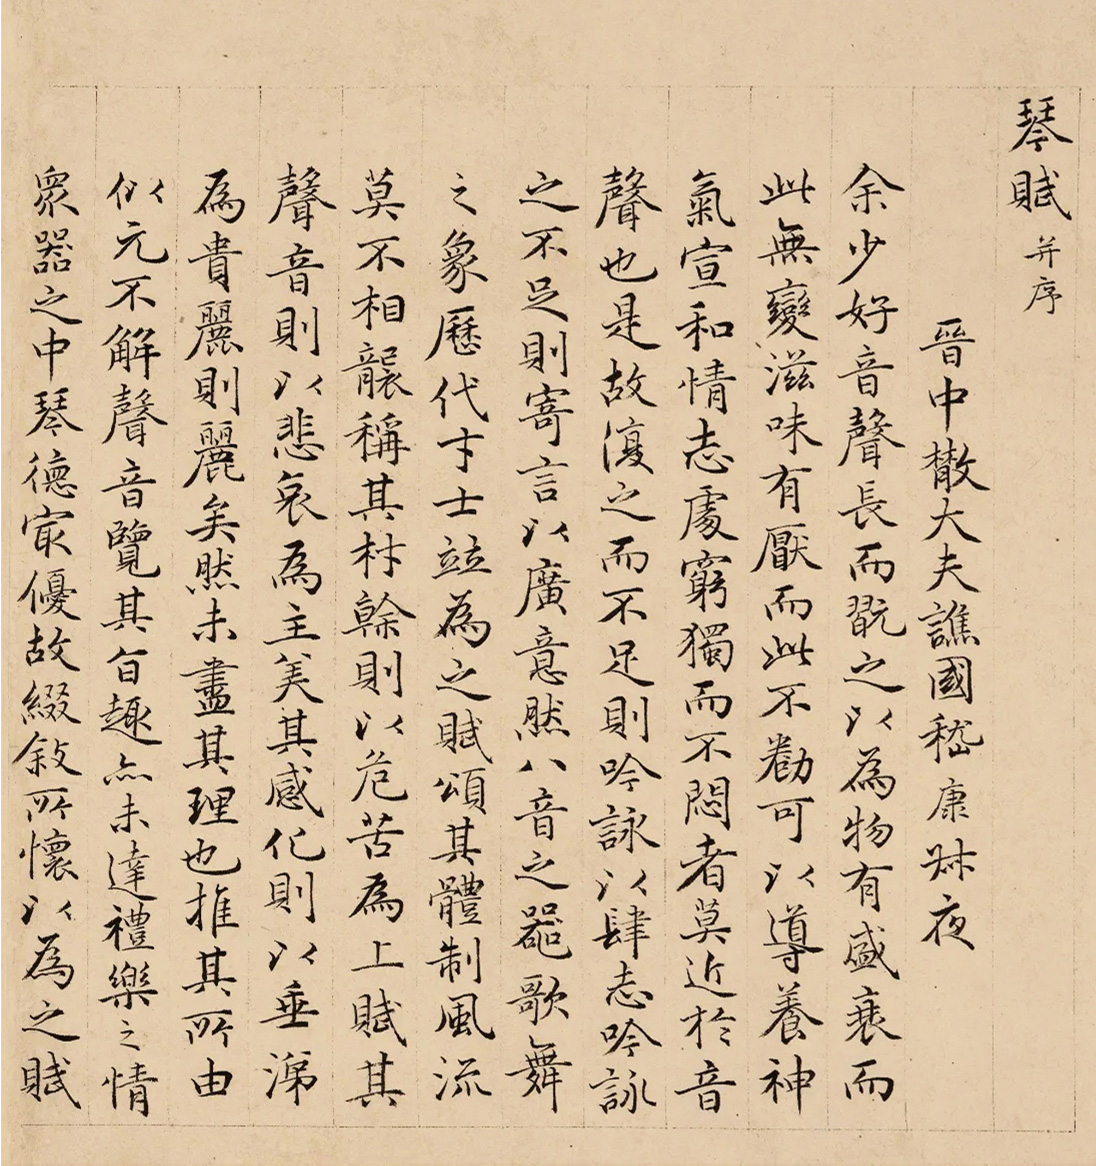 琴賦并序
晉中散大夫譙國嵇康叔夜
余少好音聲長而翫之以為物有盛衰而
此無變滋味有厭而此不勌可以導養神
氣宣和情志處窮獨而不悶者莫近於音
聲也是故復之而不足則吟詠以肆志吟詠
之不足則寄言以廣意然八音之器歌舞
之象歷代才士竝為之賦頌其體制風流
莫不相襲稱其材幹則以危苦為上賦其
聲音則以悲哀為主美其感化則以垂涕
為貴麗則麗矣然未盡其理也推其所由
似元不解聲音覽其旨趣亦未達禮樂之情
眾器之中琴德冣優故綴敘所懷以為之賦